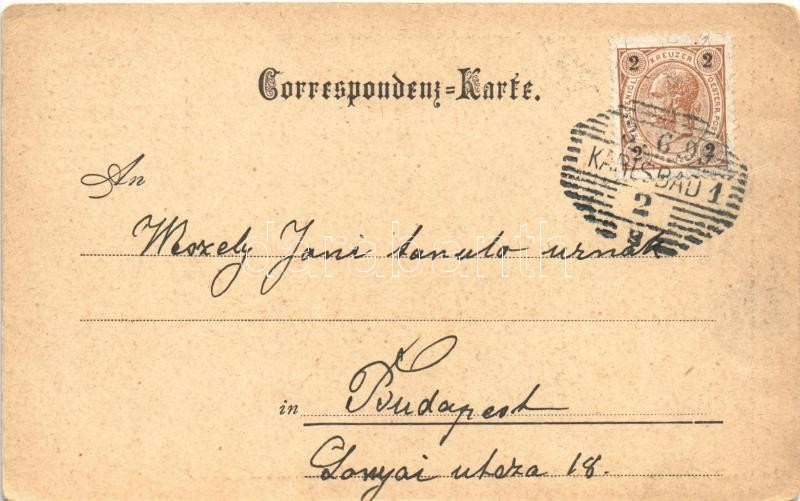 Correspondenz-Karte.
2 KREUZER 2
2 2
6 99
KARLSBAD 1
2
An
Weszely Jani tanuló urnak
darabanth
in Budapest
Lonyai utcza 18.